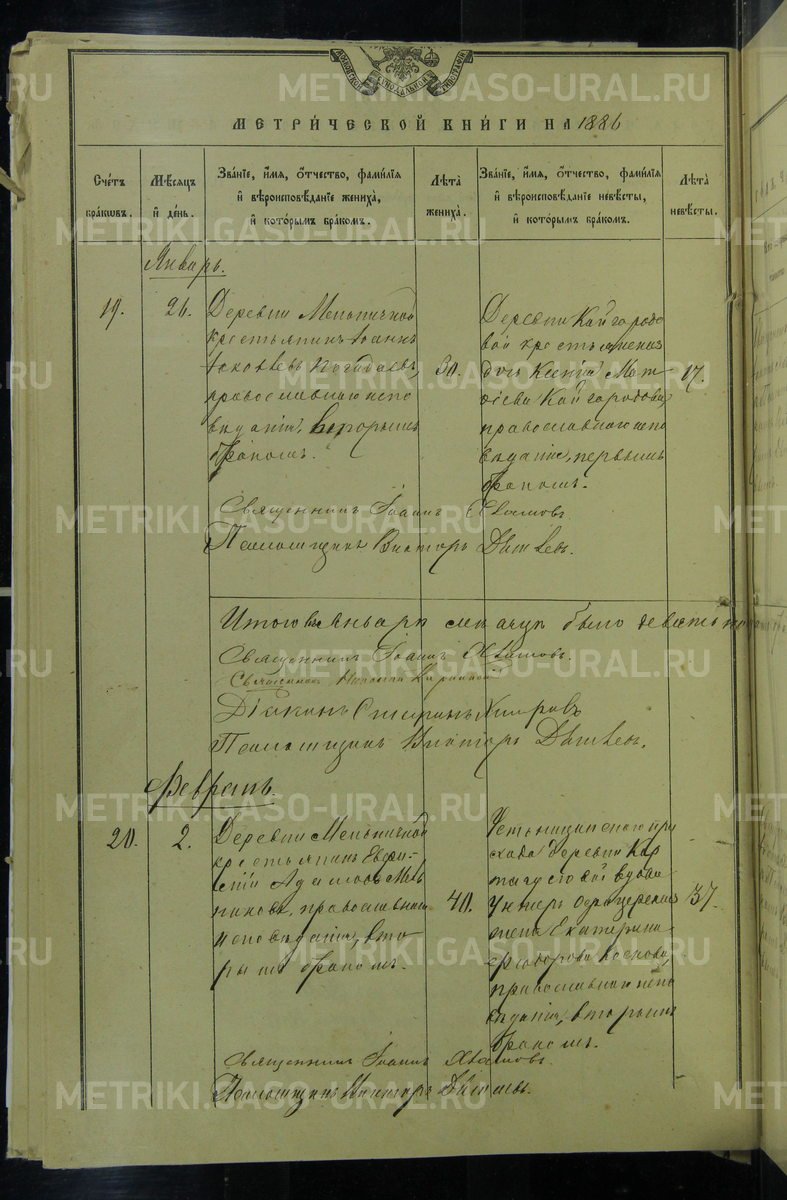 МЕТРИ́ЧЕСКОЙ КНИ́ГИ НА 1886
Сче́тъ бра́кωвъ.
Мѣ́сяцъ и҆ де́нь.
Зва́нїе, и҆́мя, ѻ҆́тчество, фами́лїя и҆ вѣроисповѣ́данїе жениха̀, и҆ кото́рымъ бра́комъ.
Лѣ́та жениха̀.
Зва́нїе, и҆́мя, ѻ҆́тчество, фами́лїя и҆ вѣроисповѣ́данїе невѣ́сты, и҆ кото́рымъ бра́комъ.
Лѣ́та невѣ́сты.
Январь.
19.
26.
Деревни Мельничной
крестьянинъ Іоаннъ
Іаковлевъ
православнаго испо
вѣданія, вторымъ
бракомъ.
30.
Деревни Кайгородо
вой крестьянска
дочь Ксенія Мат
ѳіева Кайгородова,
православнаго испо
вѣданія, первымъ
бракомъ.
17.
Священникъ Іоаннъ
Псаломщикъ Викторъ
Итого въ Январѣ мѣсяцѣ было
Священникъ Іоаннъ
Священникъ Николай
Діаконъ Стефанъ Хитровъ
Псаломщикъ Викторъ
Февраль.
20.
2.
Деревни Мельничной
крестьянинъ Евфи-
мій Адамовъ Мель
никовъ, православнаго
исповѣданія, вто
рымъ бракомъ.
40.
Устьницинскаго при
хода деревни
вдова
унтеръ офицерская
жена Екатерина
Ѳеодорова
православнаго испо
вѣданія, вторымъ
бракомъ.
37.
Священникъ Іоаннъ
Псаломщикъ Викторъ
METRIKI.GASO-URAL.RU